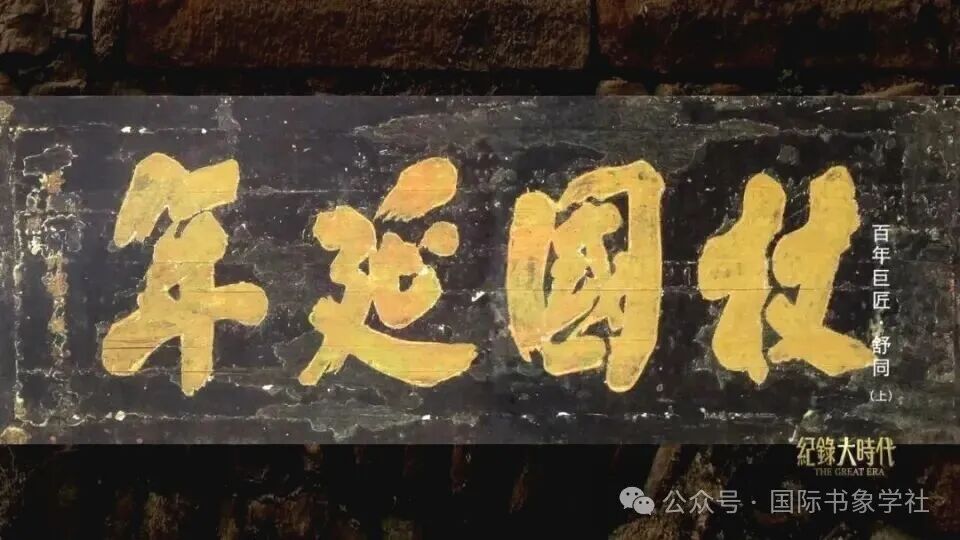 杖國延年
百年巨匠 舒同（上）
紀錄大時代
THE GREAT ERA
公众号 · 国际书象学社